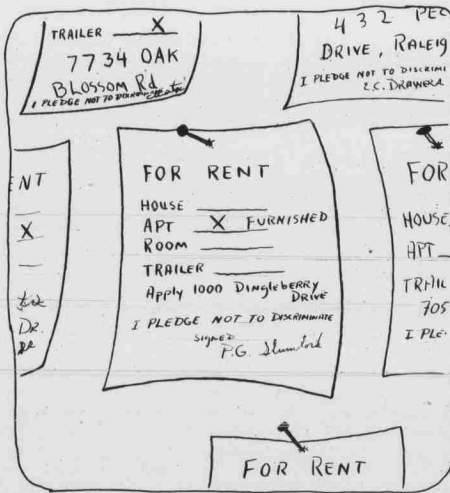 TRAILER X
7734 OAK
BLOSSOM Rd
I PLEDGE NOT TO
432 PEC
DRIVE, RALEIG
I PLEDGE NOT TO DISCRIMI
E.C. DRAWERA
ENT
X
Dr.
FOR RENT
HOUSE
APT X FURNISHED
ROOM
TRAILER
Apply 1000 Dingleberry
DRIVE
I PLEDGE NOT TO DISCRIMINATE
SIGNED
P.G. Slumlord
FOR
HOUSE
APT
TRAIL
705
I PLE
FOR RENT